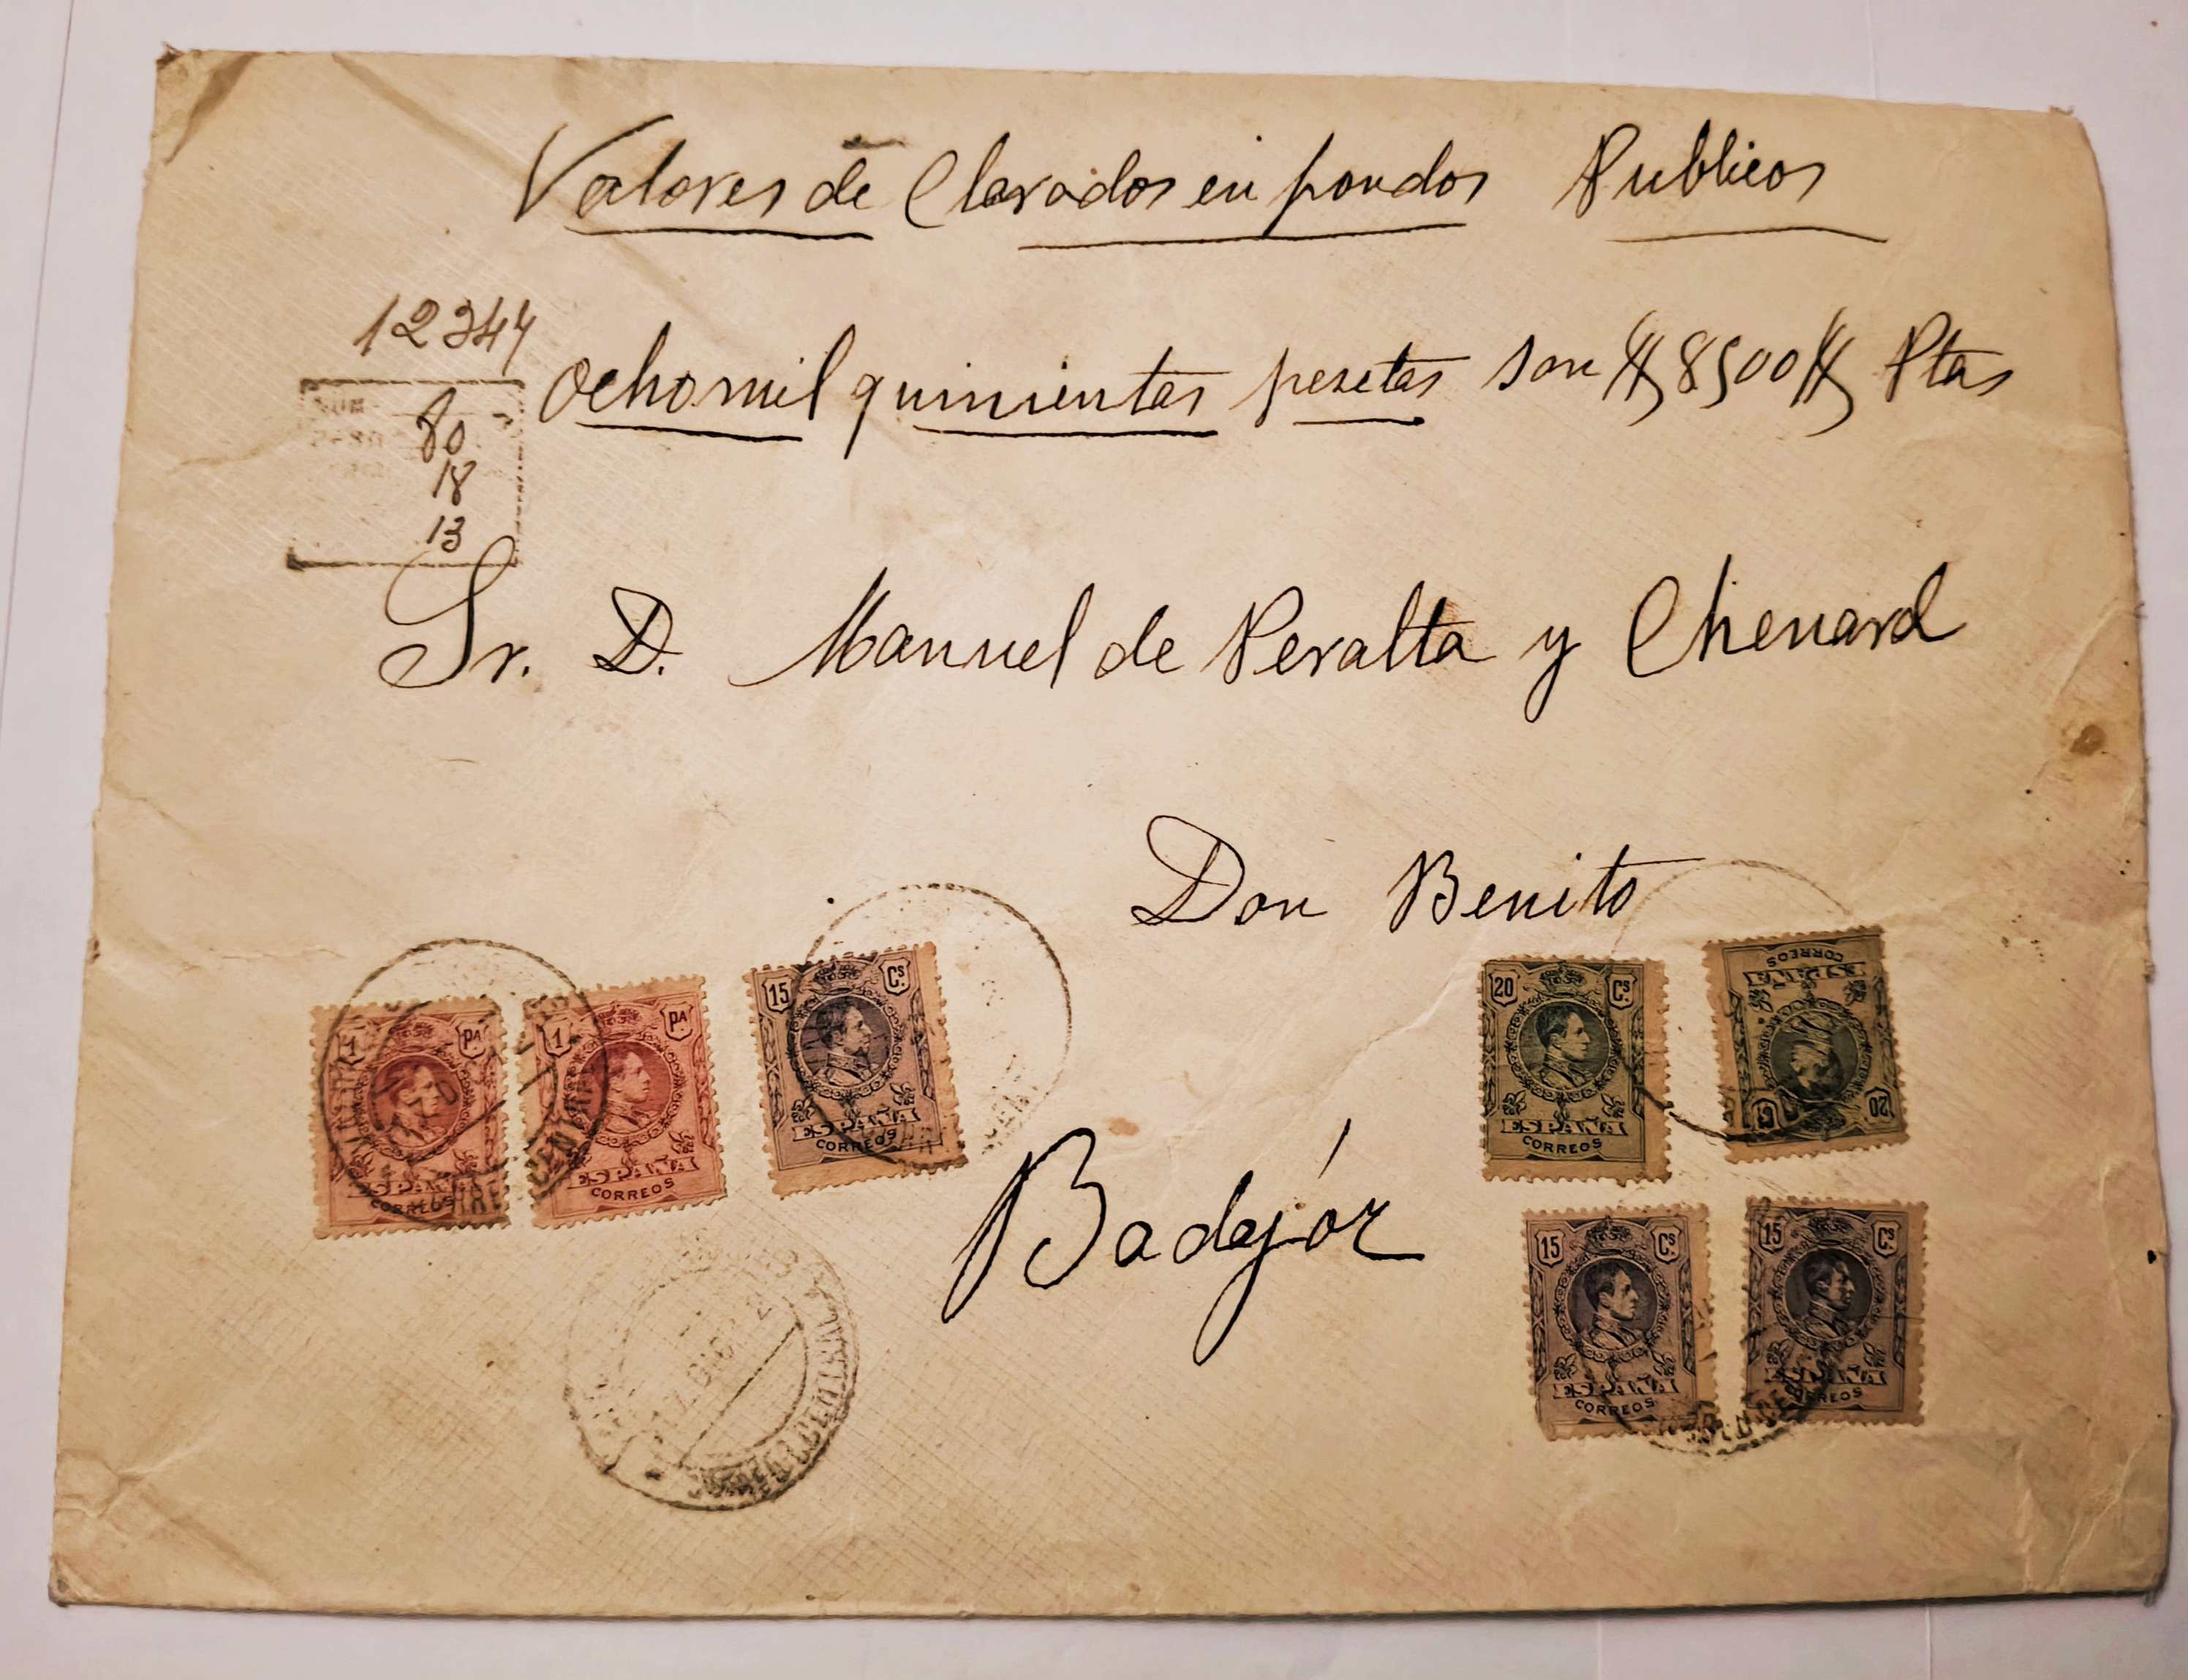 Valores de Clarados en fondos Publicos
12344
ocho mil quinientas pesetas son 8500 Ptas
80
18
13
Sr. D. Manuel de Peralta y Chenard
Don Benito
Badajóz
1 PA
ESPAÑA
CORREOS
1 PA
ESPAÑA
CORREOS
15 Cs
ESPAÑA
CORREOS
20 Cs
ESPAÑA
CORREOS
20 Cs
ESPAÑA
CORREOS
15 Cs
ESPAÑA
CORREOS
15 Cs
ESPAÑA
CORREOS